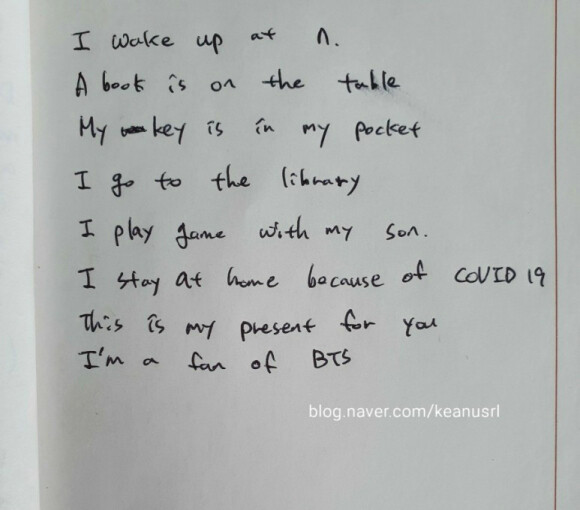 I wake up at n.
A book is on the table
My key is in my pocket
I go to the library
I play game with my son.
I stay at home because of COVID 19
This is my present for you
I'm a fan of BTS
blog.naver.com/keanusrl